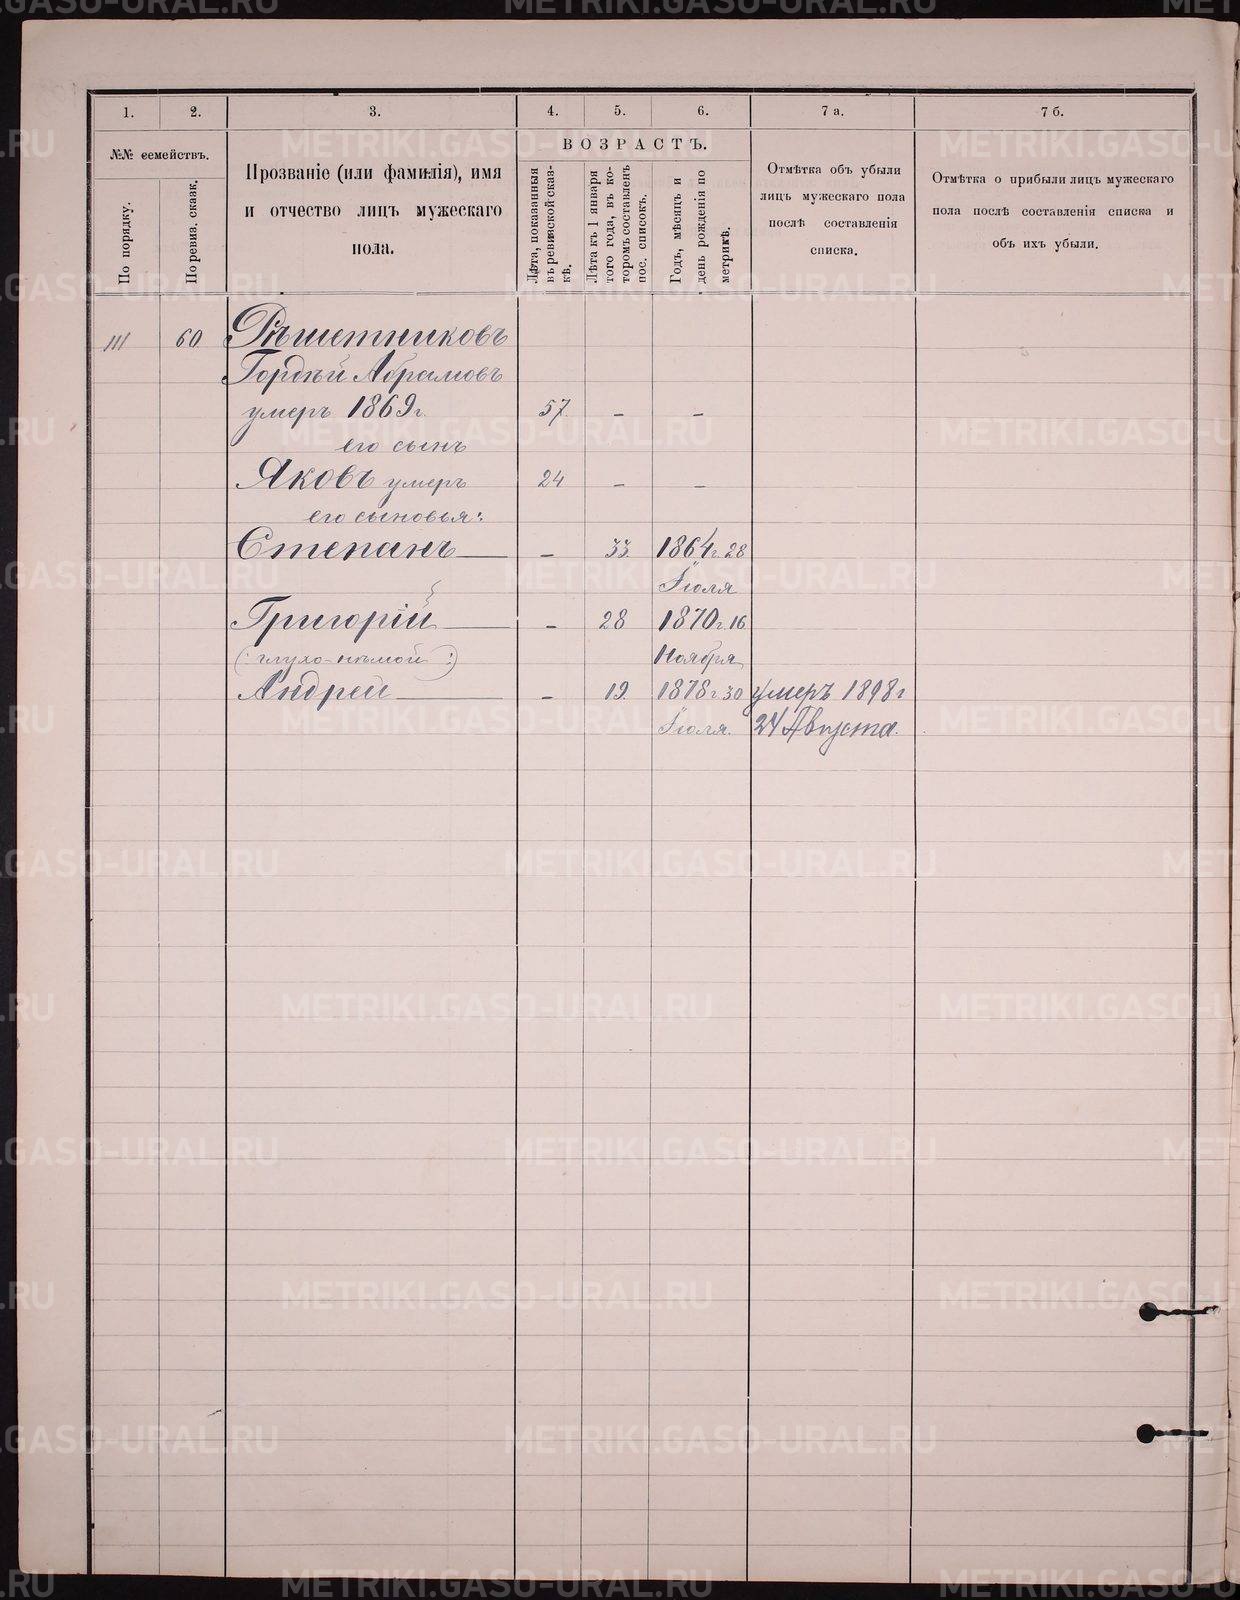 1.
2.
3.
4.
5.
6.
7 а.
7 б.
№№ семействъ.
По порядку.
По ревиз. сказк.
Прозваніе (или фамилія), имя
и отчество лицъ мужескаго
пола.
ВОЗРАСТЪ.
Лѣта, показанныя
въ ревизской сказ-
кѣ.
Лѣта къ 1 января
того года, въ ко-
торомъ составленъ
пос. списокъ.
Годъ, мѣсяцъ и
день рожденія по
метрикѣ.
Отмѣтка объ убыли
лицъ мужескаго пола
послѣ составленія
списка.
Отмѣтка о прибыли лицъ мужескаго
пола послѣ составленія списка и
объ ихъ убыли.
111 60 Рѣшетниковъ
Гордѣй Абрамовъ
умеръ 1869 г. 57. – –
его сынъ
Яковъ умеръ 24 – –
его сыновья:
Степанъ — – 33. 1864 г. 28
Іюля
Григорій — – 28 1870 г. 16
(: глухо-нѣмой :) Ноября
Андрей — – 19. 1878 г. 30 умеръ 1898 г
Іюля. 24 Августа.
METRIKI.GASO-URAL.RU